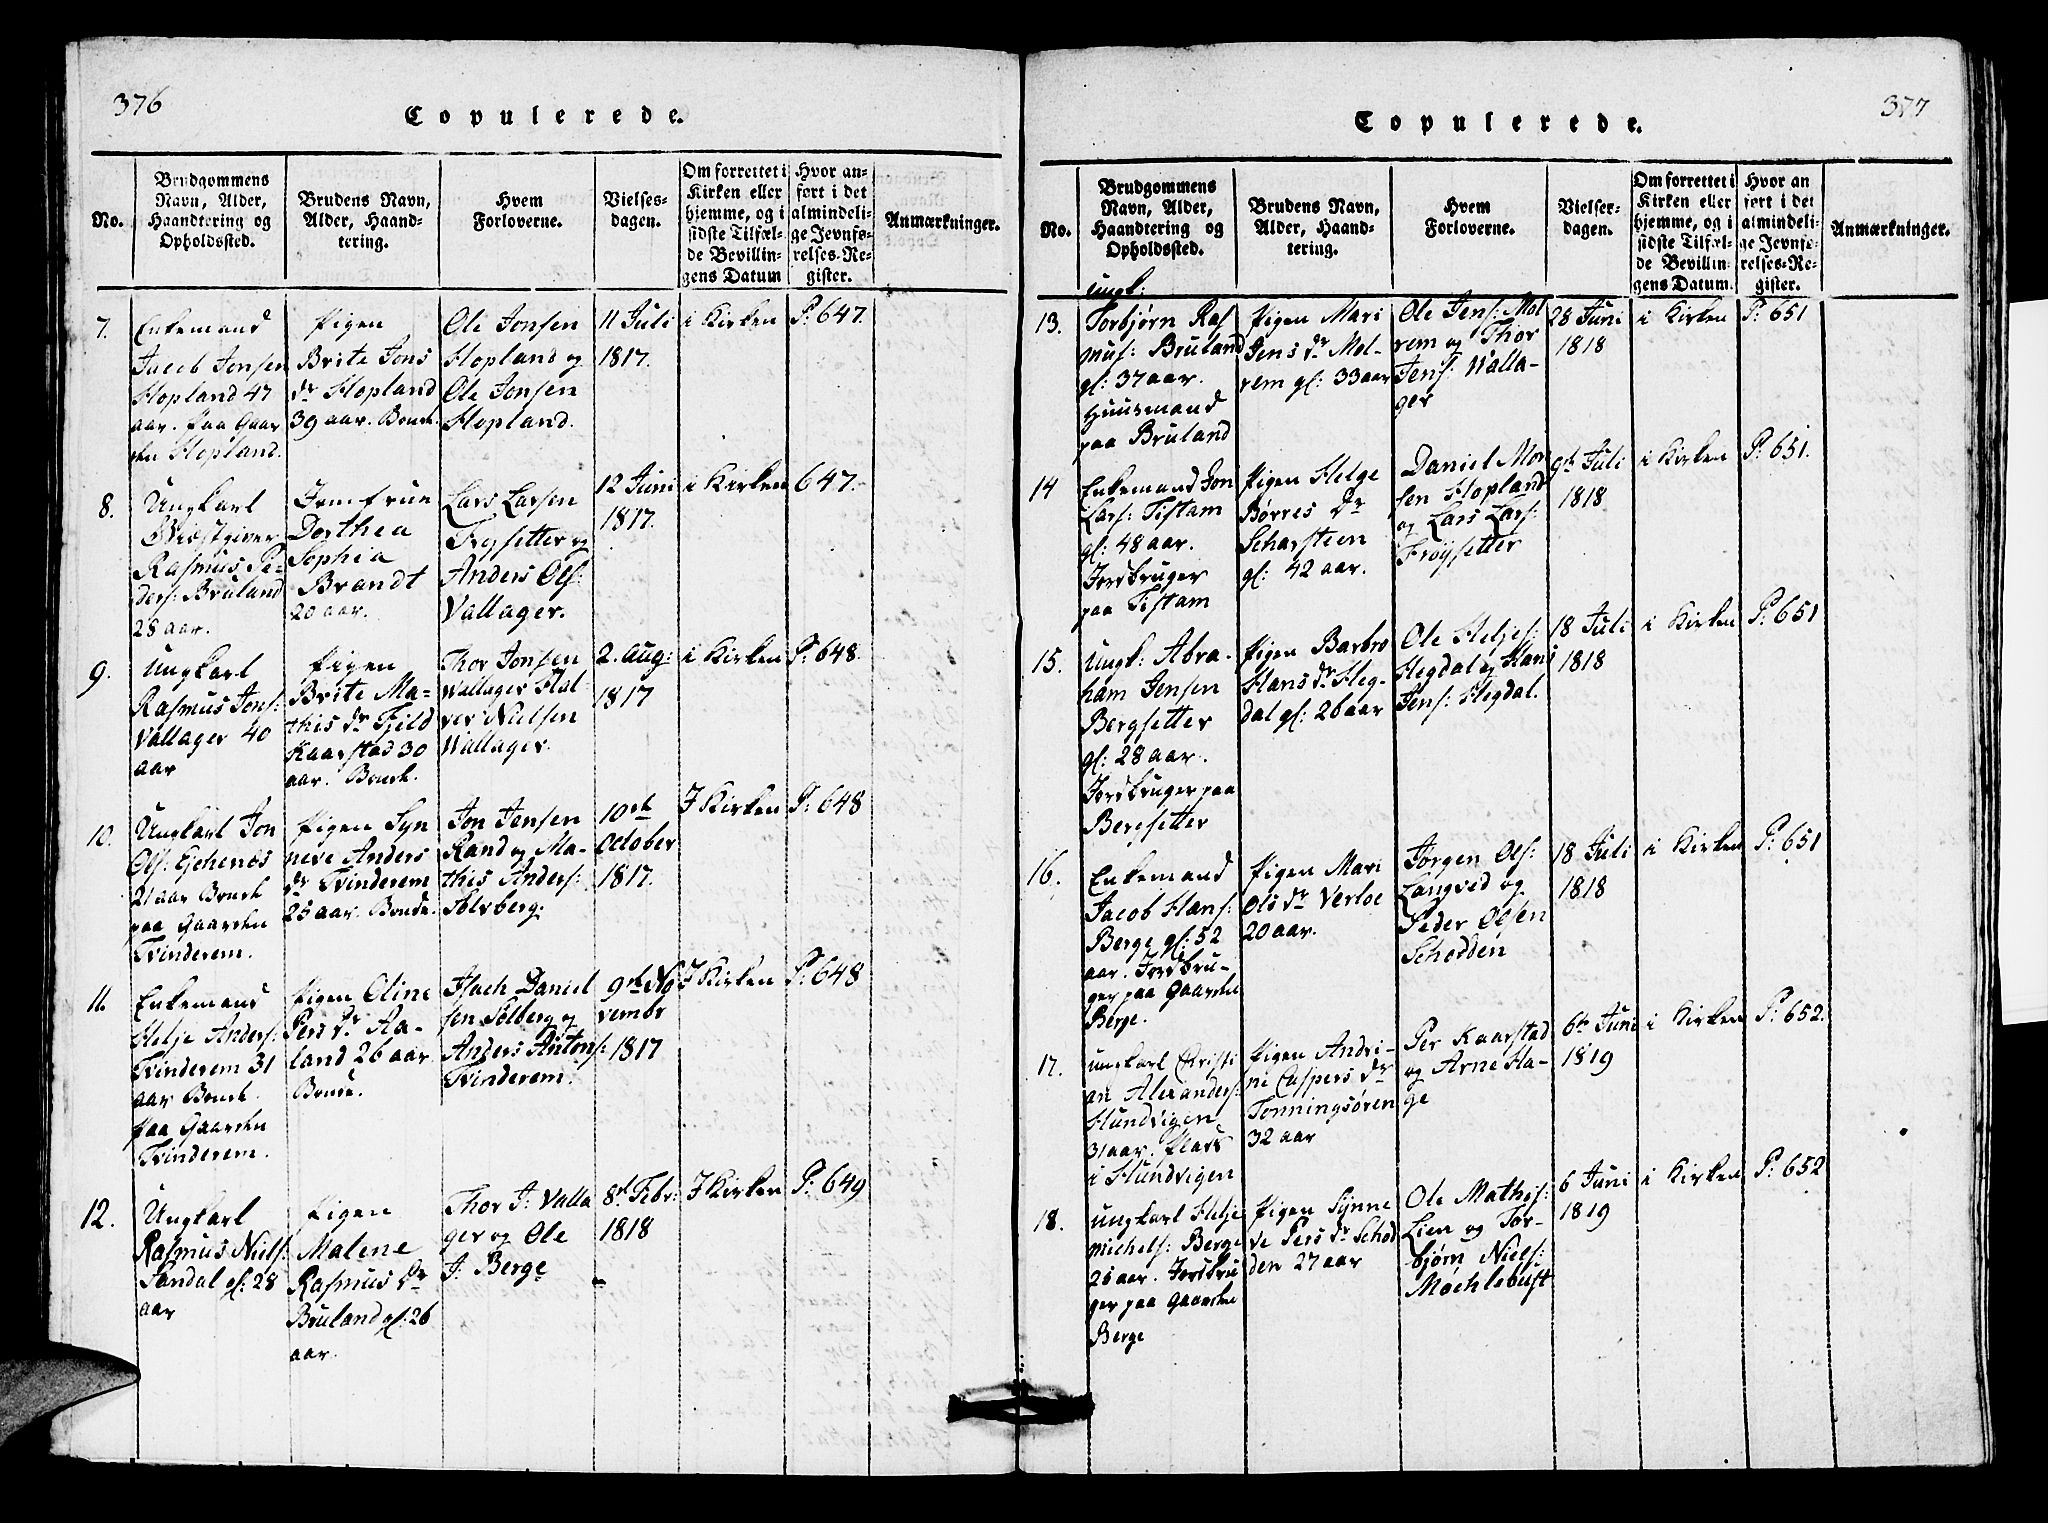 376
Copulerede.
No.
Brudgommens
Navn, Alder,
Haandtering og
Opholdssted.
Brudens Navn,
Alder, Haand-
tering.
Hvem
Forloverne.
Vielses-
dagen.
Om forrettet i
Kirken eller
hjemme, og i
sidste Tilfæl-
de Bevillin-
gens Datum
Hvor an-
ført i det
almindeli-
ge Jevnfø-
relses-Re-
gister.
Anmærkninger.
7.
Enkemand
Jacob Jonsen
Hopland 47
aar. paa Gaar
den Hopland.
Pigen
Brite Jons
dr Hopland
39 aar. Bonde.
Ole Jonsen
Hopland og
Ole Jonsen
Hopland.
11 Juli
1817.
i Kirken
P: 647.
8.
Ungkarl
Giestgiver
Rasmus Pe-
ders: Bruland
28 aar.
Jomfrue
Dorthea
Sophia
Brandt
20 aar.
Lars Larsen
Frøysetter og
Anders Ols:
Vallager.
12 Juni
1817.
i Kirken
647.
9.
Ungkarl
Rasmus Jons:
Vallager 40
aar
Pigen
Brite Ma-
this dr Fjeld
Kaarstad 30
aar. Bonde.
Thor Jonsen
Wallager Hal-
vor Nielsen
Wallager.
2. aug:
1817
i Kirken
P: 648.
10.
Ungkarl Jon
Ols:
21 aar Bonde
paa Gaarden
Tvinderem.
Pigen Syn
neve Anders
dr Tvinderem
25 aar. Bonde.
Jon Jensen
Rand og Ma-
this Anders:
Solsberg.
10de
October
1817.
I Kirken
P: 648
11.
Enkemand
Helje Anders:
Tvinderem 31
aar Bonde.
paa Gaarden
Tvinderem.
Pigen Oline
Pers dr Aa-
land 26 aar.
Bonde.
Isach Daniel
sen Solberg og
Anders Antons:
Tvinderem.
9de No
vembr
1817
I Kirken
P: 648
12.
Ungkarl
Rasmus Niels:
Sandal gl: 28
aar
Pigen
Malene
Rasmus dr
Bruland gl: 26
aar.
Thor J: Valla
ger og Ole
J: Berge
8de Febr:
1818
I Kirken
P: 649
377
Copulerede.
No.
Brudgommens
Navn, Alder,
Haandtering og
Opholdssted.
Brudens Navn,
Alder, Haand-
tering.
Hvem
Forloverne.
Vielser-
dagen.
Om forrettet i
Kirken eller
hjemme, og i
sidste Tilfæl-
de Bevillin-
gens Datum.
Hvor an
ført i det
almindeli-
ge Jevnfø-
relses-Re-
gister.
Anmærkninger.
13.
Ungk:
Torbjørn Ras
mus: Bruland
gl: 37 aar.
Huusmand
paa Bruland
Pigen Mari
Jens dr Mol-
rem gl: 33 aar
Ole Jens: Mol
rem og Thor
Jens: Walla-
ger
28 Juni
1818
i Kirken
P: 651
14
Enkemand Jon
Lars: Tistam
gl: 48 aar.
Jordbruger
paa Tistam
Pigen Helge
Børres dr
Scharsteen
gl: 42 aar.
Daniel Mon
sen Hopland
og Lars Lars:
Frøysetter
9de Juli
1818
i Kirken
P: 651.
15.
Ungk: Abra-
ham Jensen
Bergsetter
gl: 28 aar.
Jordbruger paa
Beresetter
Pigen Barbro
Hans dr Heg-
dal gl: 26 aar
Ole Heljes:
Hegdal og Hans
Jens: Hegdal.
18 Juli
1818
i Kirken
P: 651
16.
Enkemand
Jacob Hans:
Berge gl: 52
aar. Jordbru-
ger paa Gaarden
Berge.
Pigen Mari
Ols dr Verloe
20 aar.
Jørgen Ols:
Langved og
Peder Olsen
Schodden
18 Juli
1818
i Kirken
P: 651
17.
Ungkarl Christi
an Alexanders:
Hundvigen
31 aar. Plads
i Hundvigen
Pigen Andri-
ne Caspers dr
Tonningsøren
32 aar
Per Kaarstad
og Arne Ha-
ge
6te Juni
1819
i Kirken
P: 652.
18.
Ungkarl Helje
Michels: Berge
25 aar. Jordbru
ger paa Gaarden
Berge
Pigen Synne
ve Pers dr Schod
den 27 aar
Ole Mathis:
Lien og Tor-
bjørn Niels:
Mochlebust
6 Juni
1819
i Kirken
P: 652